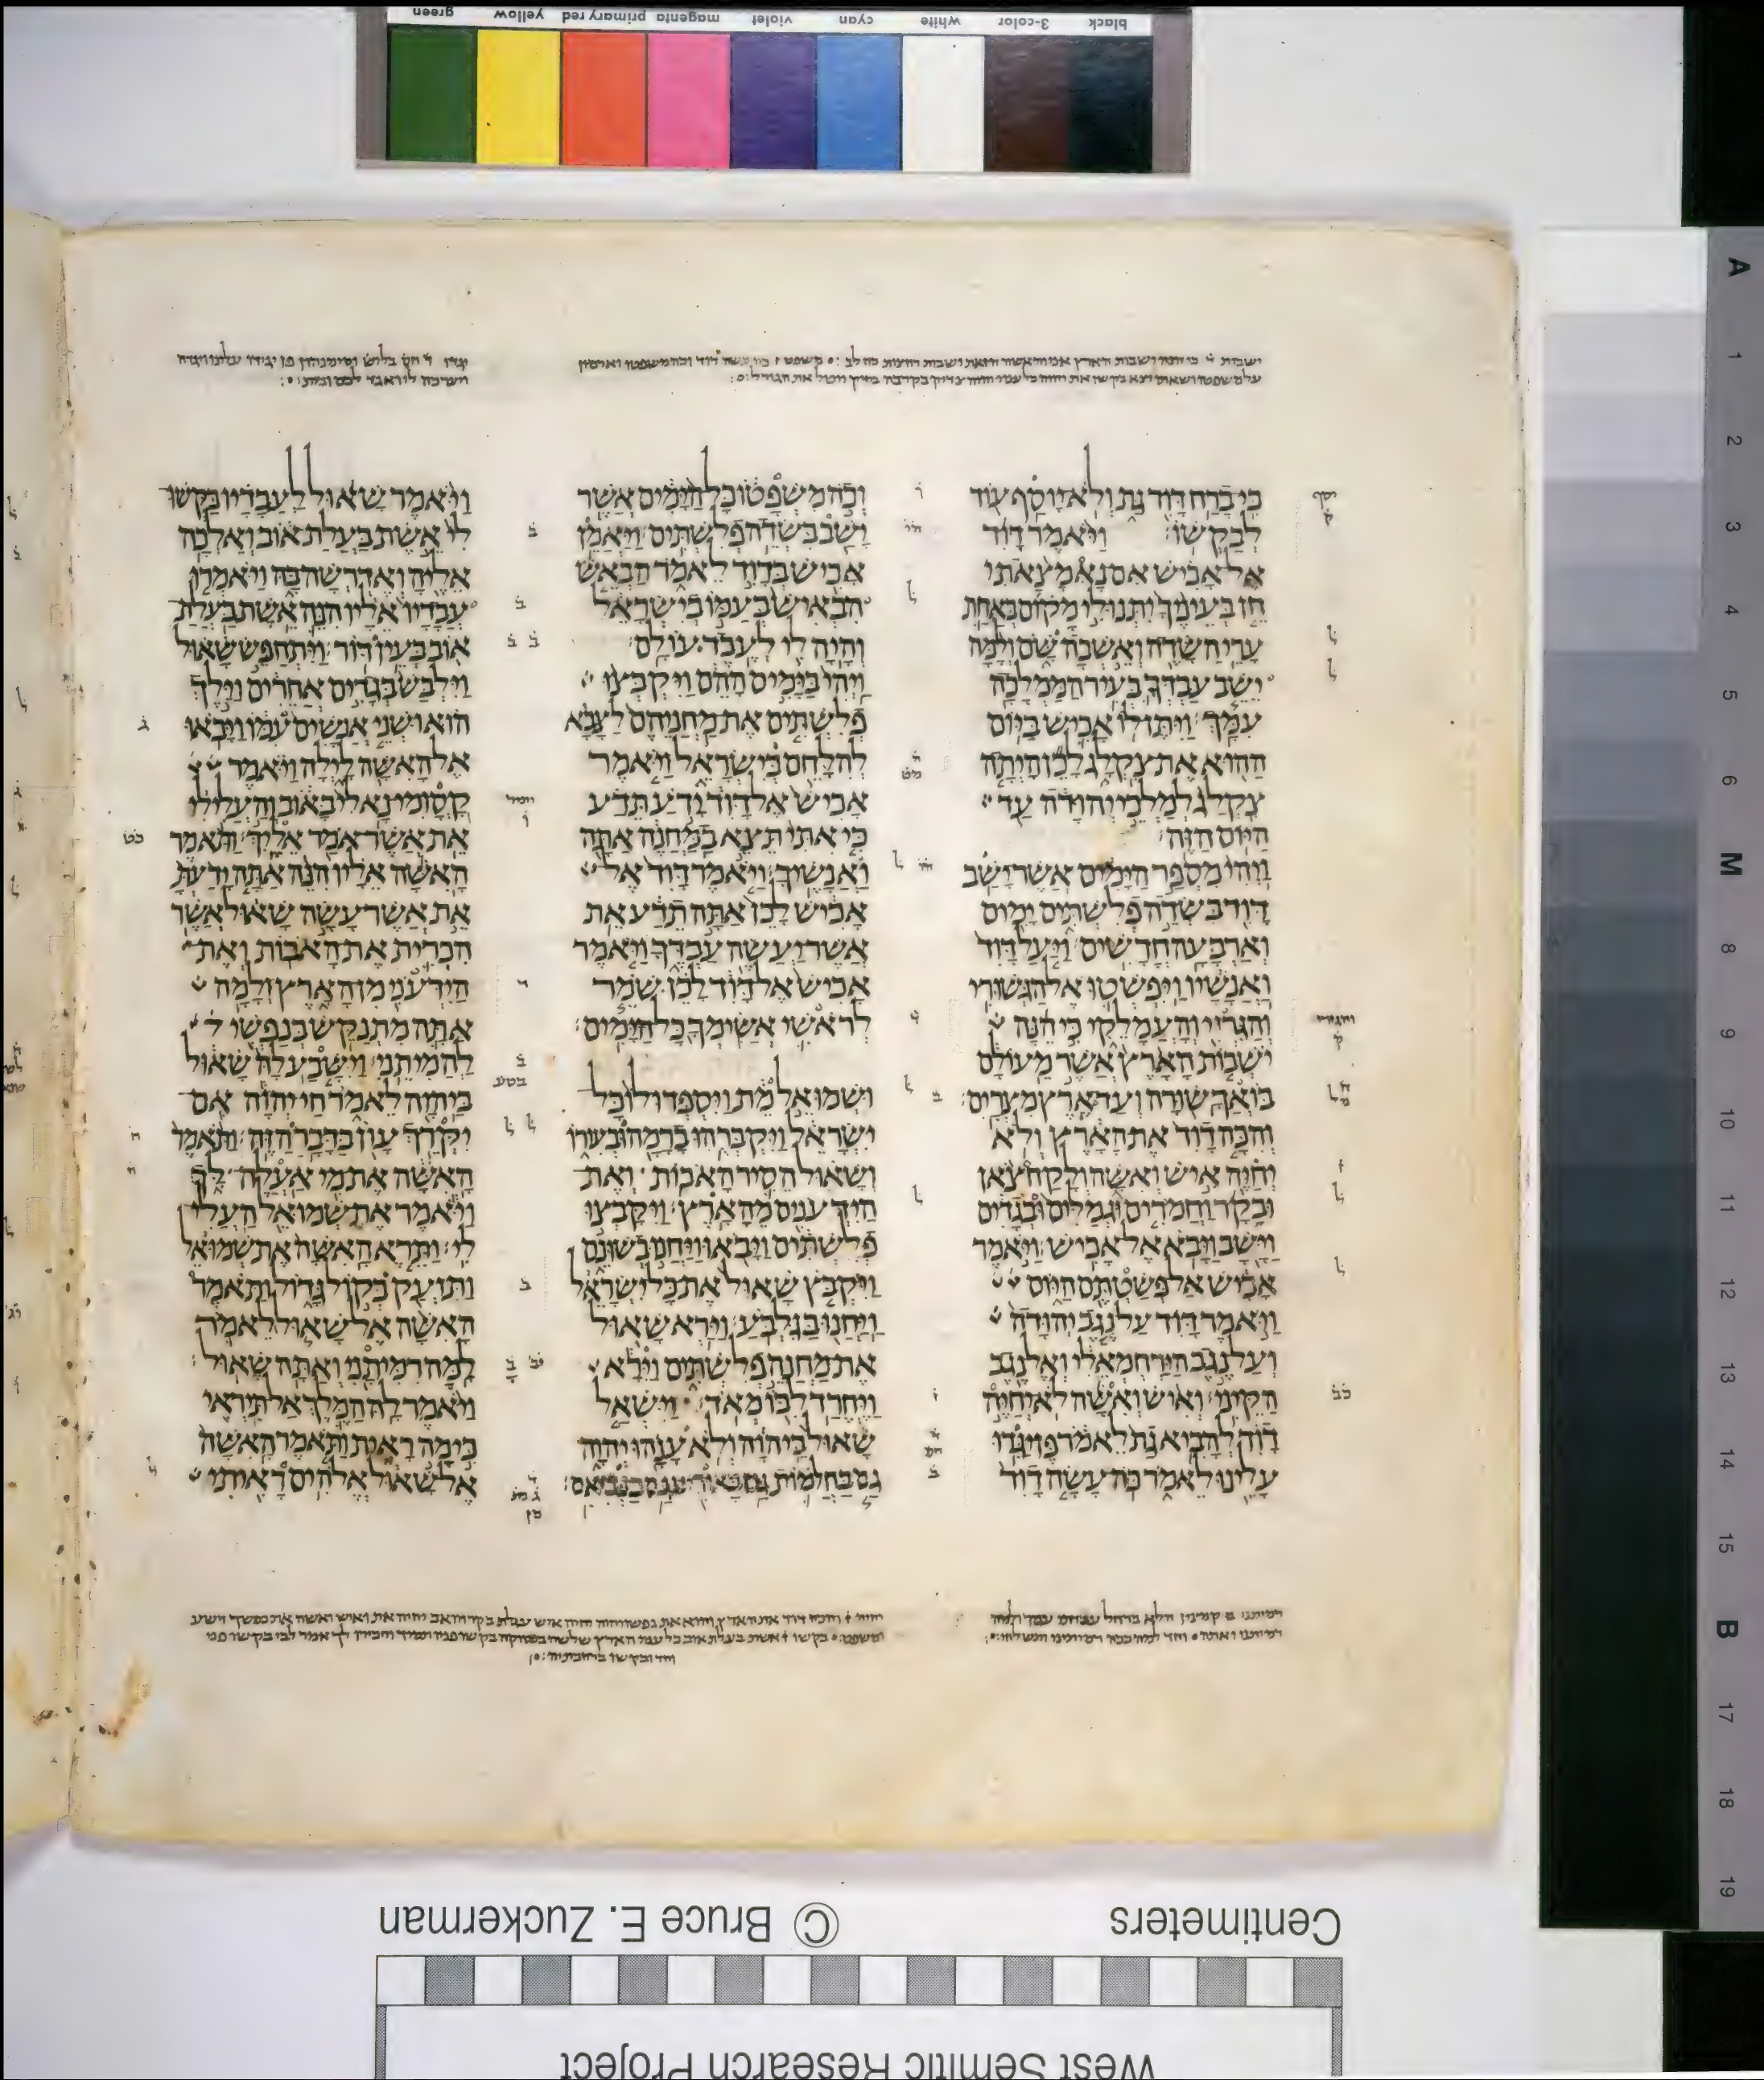 green yellow primary red magenta violet cyan white 3-color black
כי ברח דוד גת ולא יוסף עוד
לבקש ו׃ ויאמר דוד
אל אכיש אם נא מצאתי
חן בעיניך יתנו לי מקום באחת
ערי השדה ואשבה שם ולמה
ישב עבדך בעיר הממלכה
עמך׃ ויתן לו אכיש ביום
ההוא את צקלג לכן היתה
צקלג למלכי יהודה עד
היום הזה׃
ויהי מספר הימים אשר ישב
דוד בשדה פלשתים ימים
וארבעה חדשים׃ ויעל דוד
ואנשיו ויפשטו אל הגשורי
והגרזי והעמלקי כי הנה
ישבות הארץ אשר מעולם
בואך שורה ועד ארץ מצרים׃
והכה דוד את הארץ ולא
יחיה איש ואשה ולקח צאן
ובקר וחמרים וגמלים ובגדים
וישב ויבא אל אכיש׃ ויאמר
אכיש אל פשטתם היום
ויאמר דוד על נגב יהודה
ועל נגב הירחמאלי ואל נגב
הקיני׃ ואיש ואשה לא יחיה
דוד להביא גת לאמר פן יגדו
עלינו לאמר כה עשה דוד
וכה משפטו כל הימים אשר
ישב בשדה פלשתים׃ ויאמן
אכיש בדוד לאמר הבאש
הבאיש בעמו בישראל
והיה לי לעבד עולם׃
ויהי בימים ההם ויקבצו
פלשתים את מחניהם לצבא
להלחם בישראל ויאמר
אכיש אל דוד ידע תדע
כי אתי תצא במחנה אתה
ואנשיך׃ ויאמר דוד אל
אכיש לכן אתה תדע את
אשר יעשה עבדך ויאמר
אכיש אל דוד לכן שמר
לראשי אשימך כל הימים׃
ושמואל מת ויספדו לו כל
ישראל ויקברהו ברמה ובעירו
ושאול הסיר האבות ואת
הידענים מהארץ׃ ויקבצו
פלשתים ויבאו ויחנו בשונם
ויקבץ שאול את כל ישראל
ויחנו בגלבע׃ וירא שאול
את מחנה פלשתים וירא
ויחרד לבו מאד׃ וישאל
שאול ביהוה ולא ענהו יהוה
גם בחלמות גם באורים גם בנביאם׃
ויאמר שאול לעבדיו בקשו
לי אשת בעלת אוב ואלכה
אליה ואדרשה בה ויאמרו
עבדיו אליו הנה אשת בעלת
אוב בעין דור׃ ויתחפש שאול
וילבש בגדים אחרים וילך
הוא ושני אנשים עמו ויבאו
אל האשה לילה ויאמר
קסומי נא לי באוב והעלי לי
את אשר אמר אליך׃ ותאמר
האשה אליו הנה אתה ידעת
את אשר עשה שאול אשר
הכרית את האבות ואת
הידעני מן הארץ ולמה
אתה מתנקש בנפשי
להמיתני׃ וישבע לה שאול
ביהוה לאמר חי יהוה אם
יקרך עון בדבר הזה׃ ותאמר
האשה את מי אעלה לך
ויאמר את שמואל העלי
לי׃ ותרא האשה את שמואל
ותזעק בקול גדול ותאמר
האשה אל שאול לאמר
למה רמיתני ואתה שאול׃
ויאמר לה המלך אל תיראי
כי מה ראית ותאמר האשה
אל שאול אלהים ראיתי
Centimeters © Bruce E. Zuckerman
West Semitic Research Project
A
1
2
3
4
5
6
M
8
9
10
11
12
13
14
15
B
17
18
19